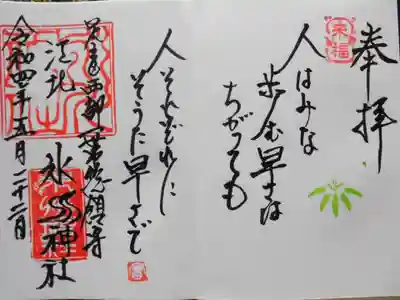 奉拝
来福
人はみな
歩む早さは
ちがっても
人それぞれに
そうた早さで
西部 総鎮守
江北 氷川神社
令和四年五月二十二日